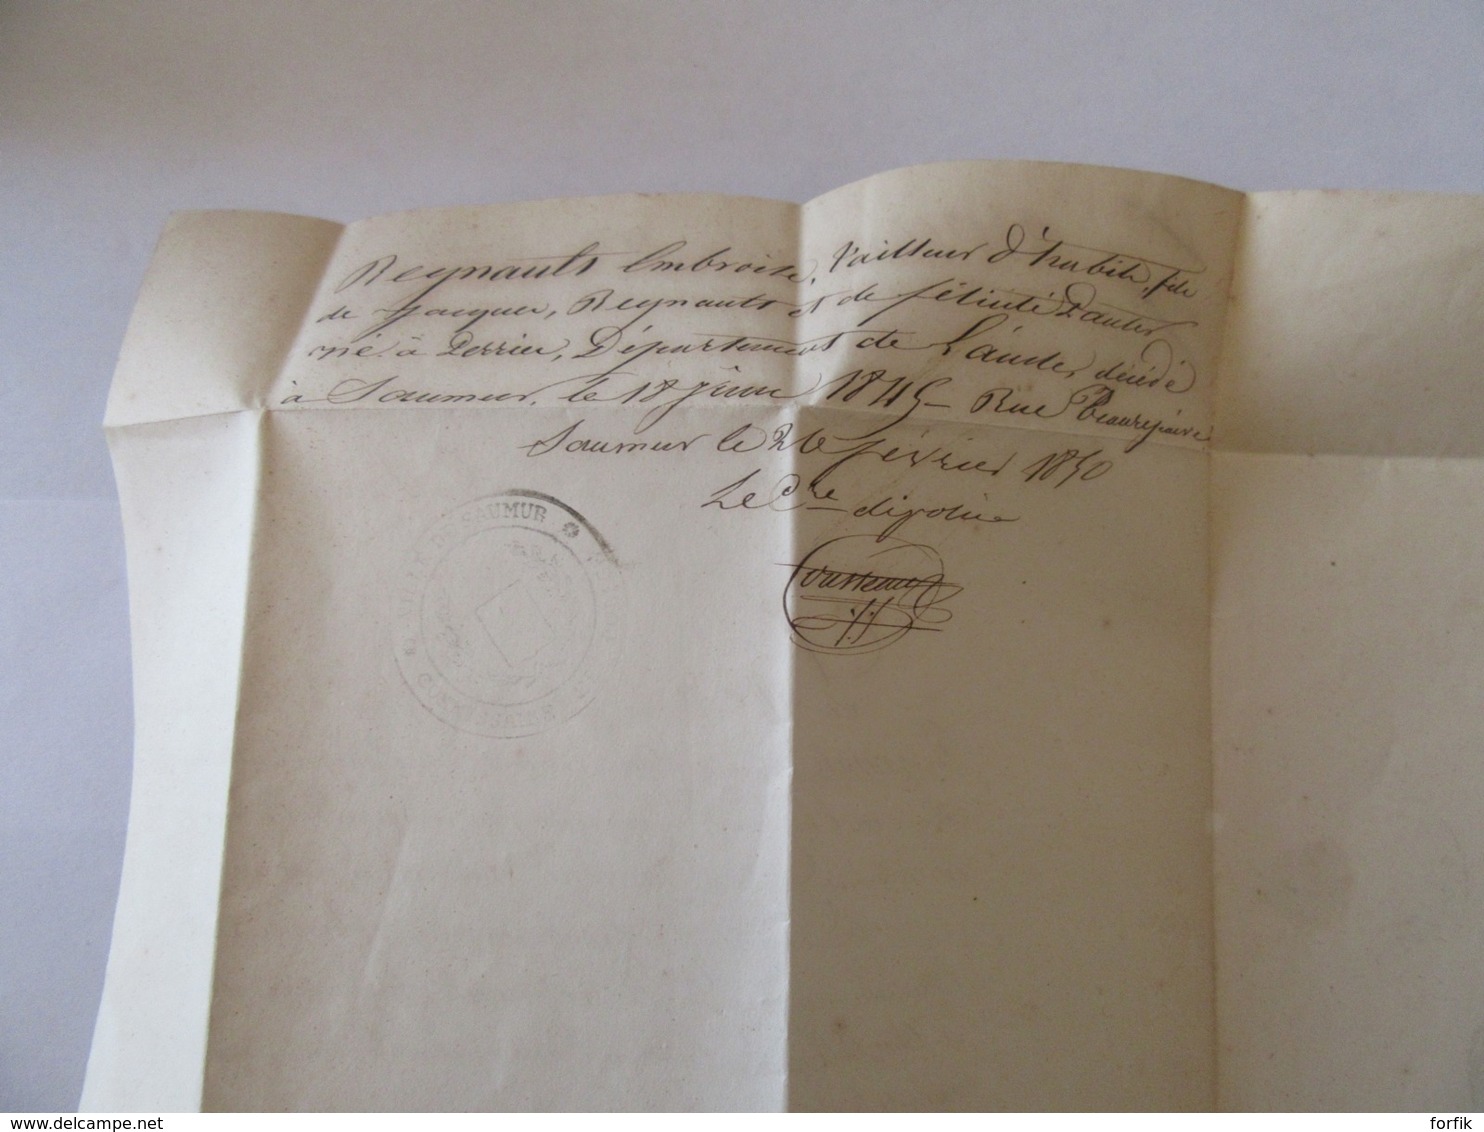 Reynault Ambroise, tailleur d'habits, fils
de Jacques, Reynault et de félicité Pauter
né à Perrier, Département de L'aude, décédé
à Saumur, le 18 Juin 1845 - Rue Beaurepaire
Saumur le 26 février 1850
Le Cre de police
VILLE DE SAUMUR
COMMISSAIRE
forfik
delcampe.net